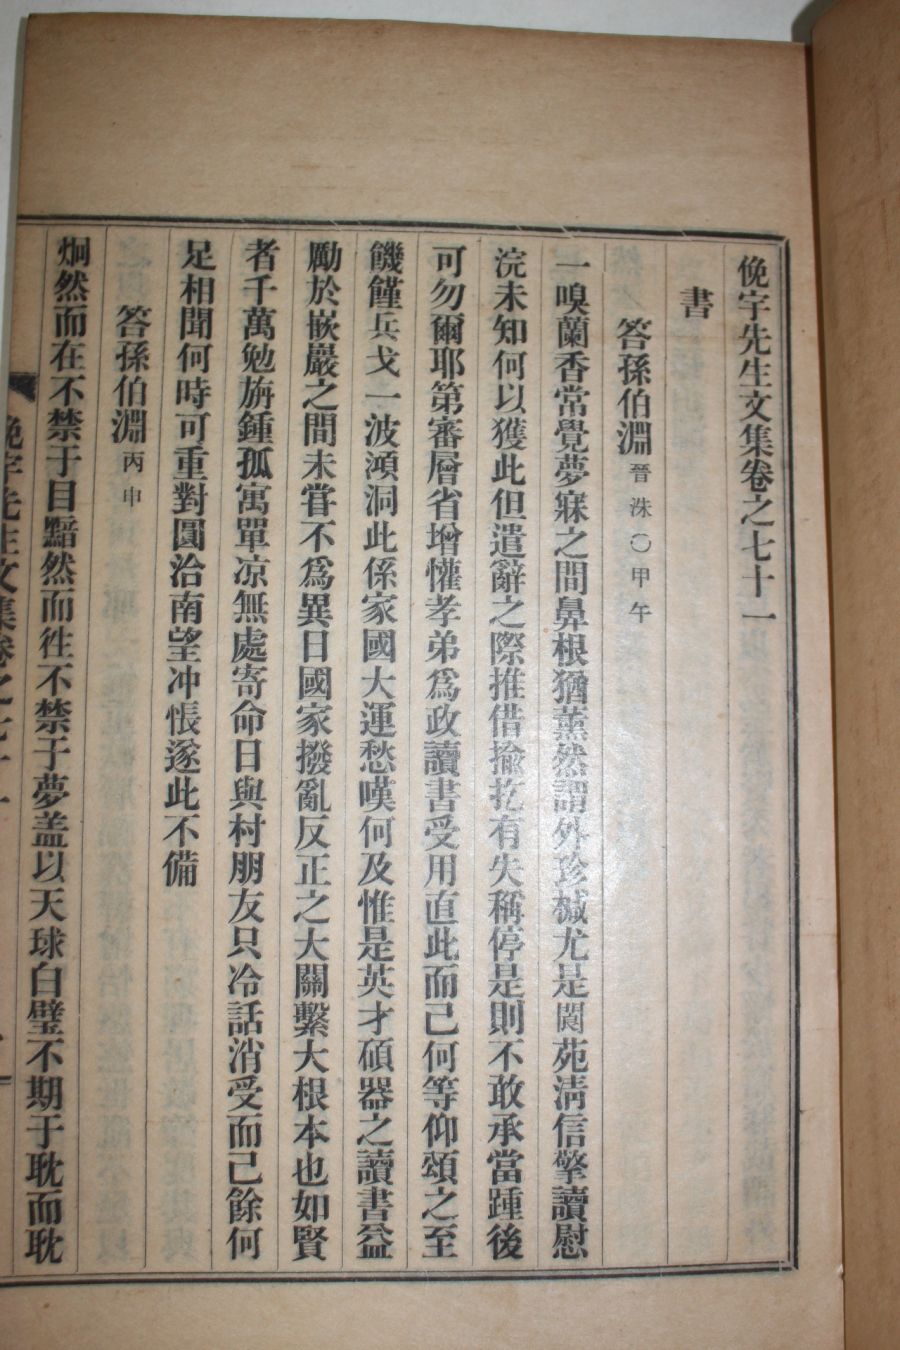 俛宇先生文集卷之七十一
書
答孫伯淵晉洙〇甲午
一嗅蘭香常覺夢寐之間鼻根猶薰然謂外珍椷尤是閬苑淸信擎讀慰
浣未知何以獲此但遣辭之際推借揄扢有失稱停是則不敢承當踵後
可勿爾耶第審層省增懽孝弟爲政讀書受用直此而已何等仰頌之至
饑饉兵戈一波澒洞此係家國大運愁嘆何及惟是英才碩器之讀書益
勵於嵌巖之間未甞不爲異日國家撥亂反正之大關繫大根本也如賢
者千萬勉旃鍾孤寓單凉無處寄命日與村朋友只冷話消受而已餘何
足相聞何時可重對圓洽南望冲悵遂此不備
答孫伯淵丙申
炯然而在不禁于目黯然而徃不禁于夢盖以天球白璧不期于耽而耽
俛宇先生文集卷之七十一